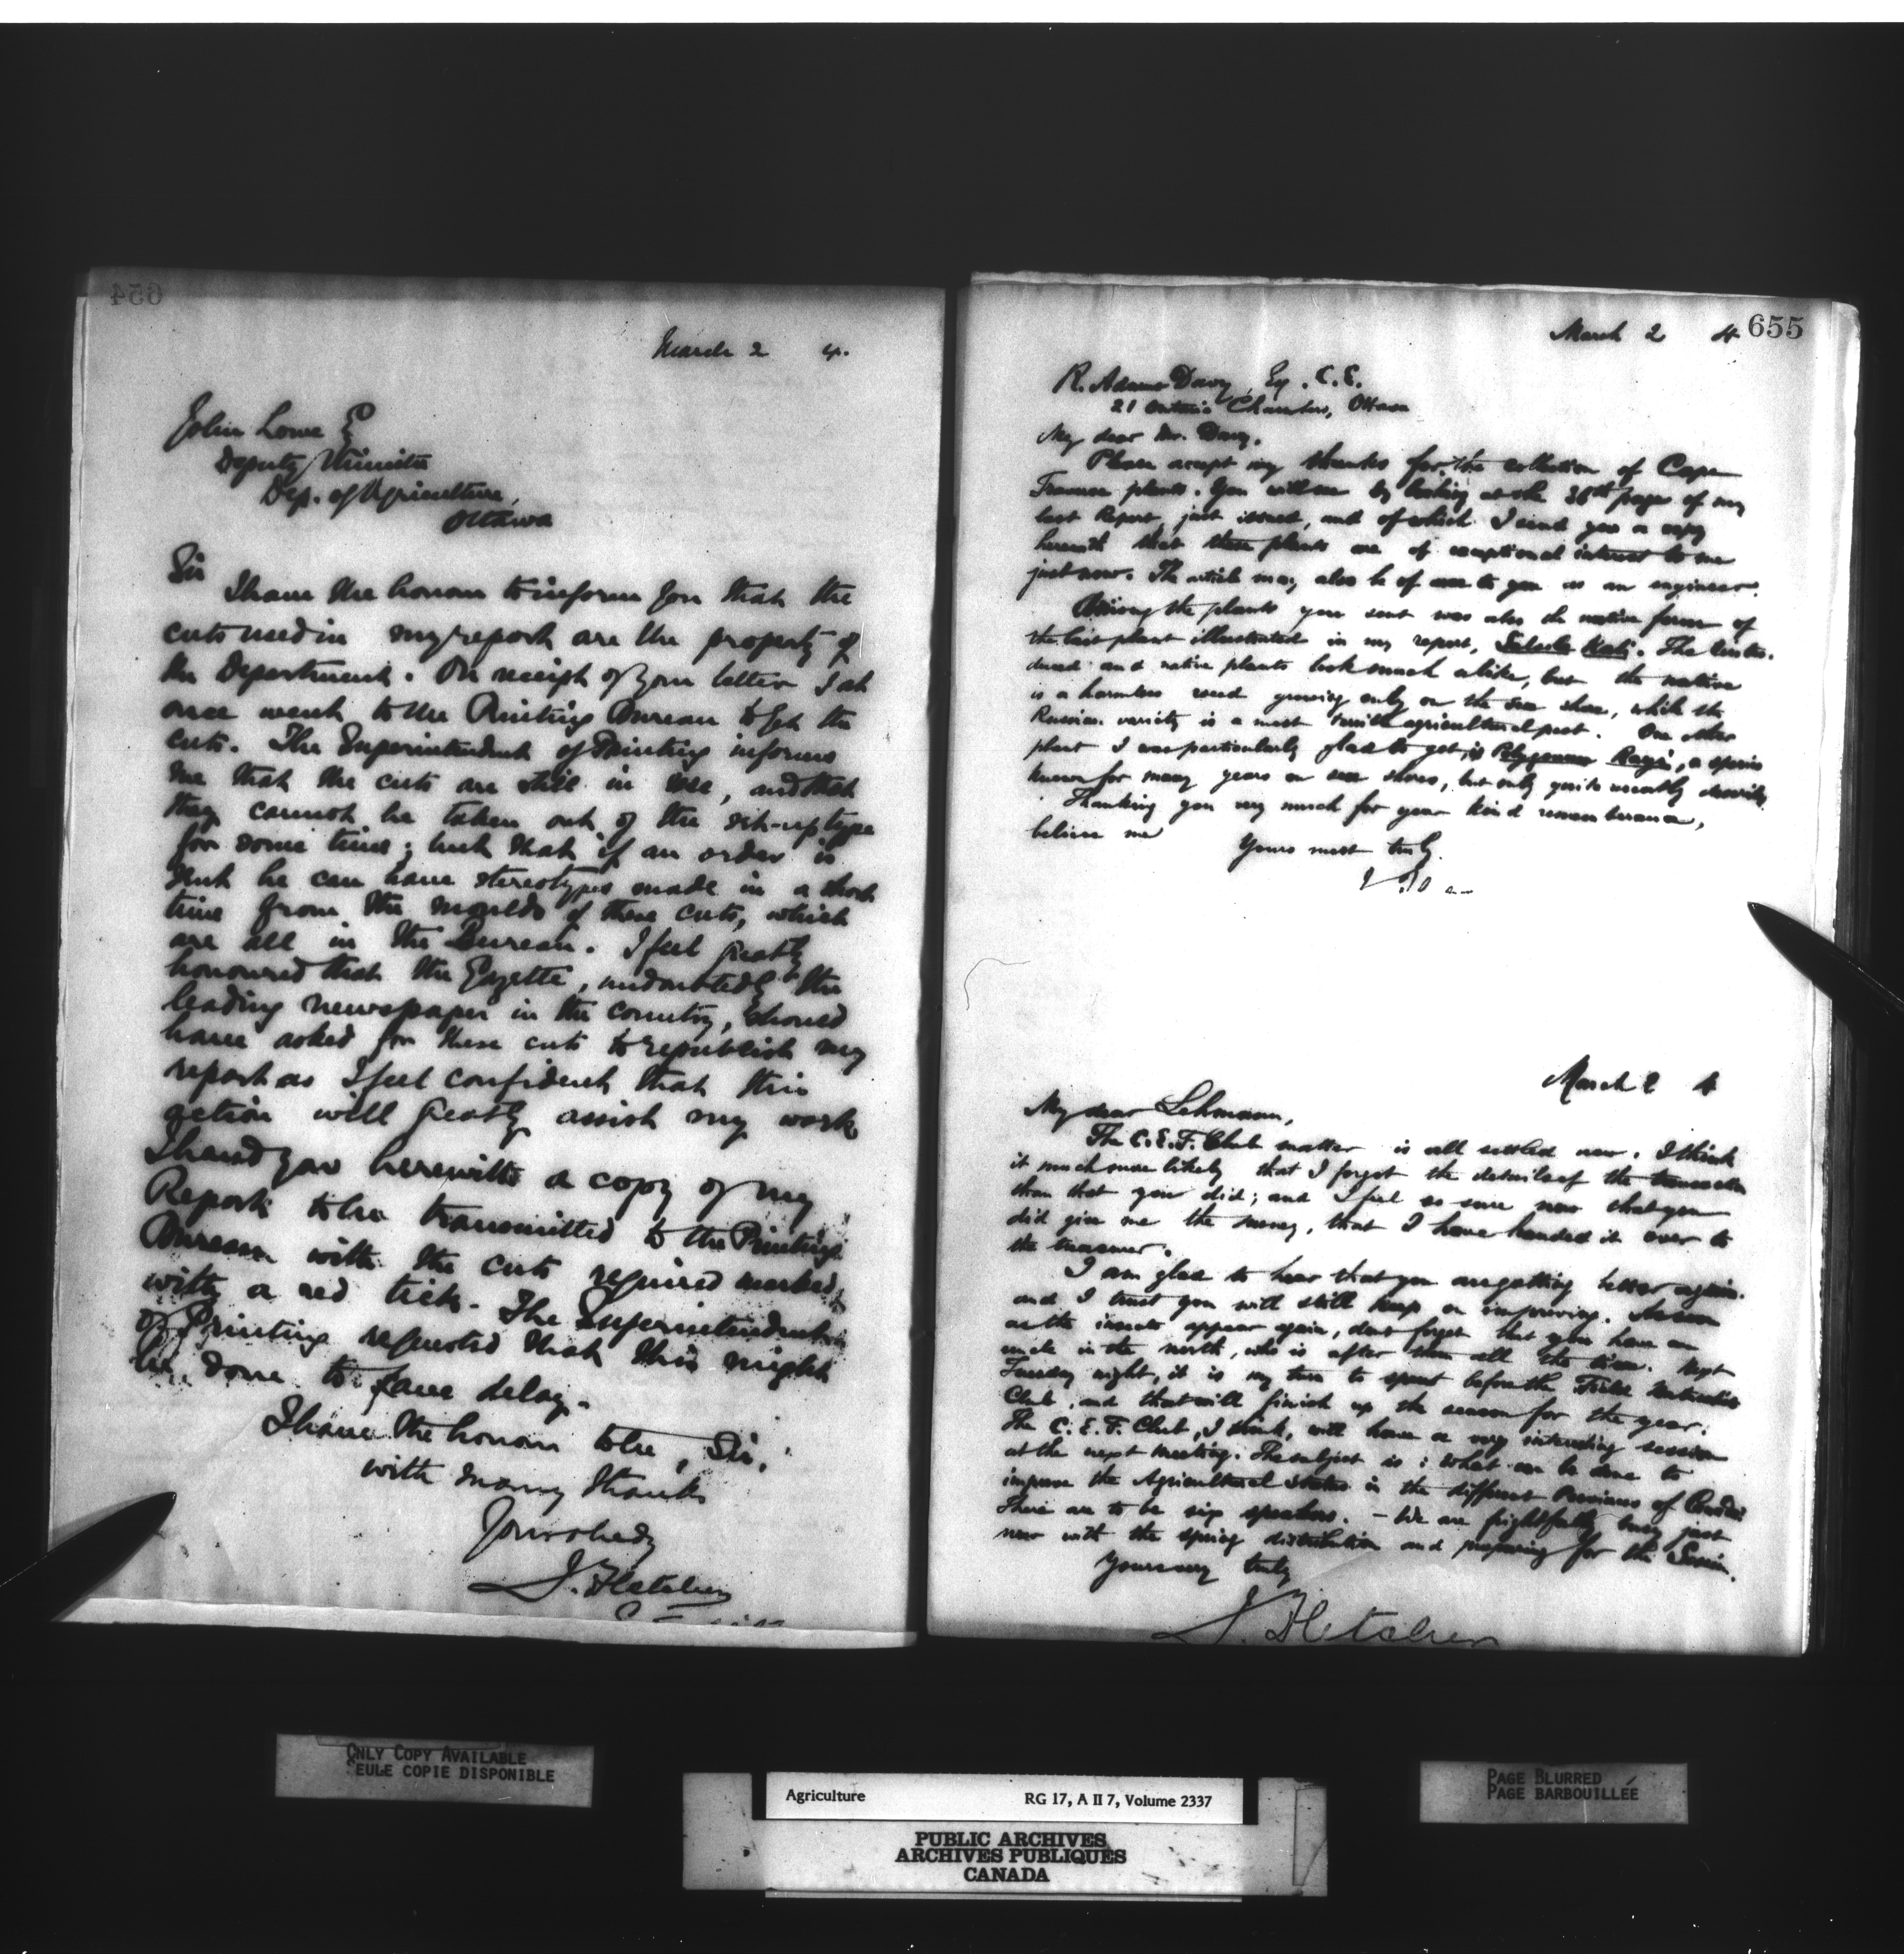 654
March 2 4.
John Lowe E
Deputy Minister
Dep. of Agriculture,
Ottawa
Sir
I have the honour to inform you that the
cuts used in my report are the property of
the Department. On receipt of your letter I at
once went to the Printing Bureau to get the
cuts. The Superintendent of Printing informs
me that the cuts are still in use, and that
they cannot be taken out of the set-up type
for some time; but that if an order is
sent he can have stereotypes made in a short
time from the moulds of these cuts, which
are all in the Bureau. I feel greatly
honoured that the Gazette, undoubtedly the
leading newspaper in the country, should
have asked for these cuts to republish my
report as I feel confident that this
action will greatly assist my work
I send you herewith a copy of my
Report to be transmitted to the Printing
Bureau with the cuts required marked
with a red tick. The Superintendent
of Printing requested that this might
be done to save delay.
I have the honour to be, Sir,
with many thanks
Yours obedy
J. Fletcher
655
March 2 4
R. Adams Davy, Esq. C.E.
21 Ontario Chambers, Ottawa
My dear Mr. Davy,
Please accept my thanks for the collection of Cape
Traverse plants. You will see by looking at the 36th page of my
last Report, just issued, and of which I send you a copy
herewith that these plants are of exceptional interest to me
just now. The article may also be of use to you as an engineer.
Among the plants you sent was also the native form of
the last plant illustrated in my report, Salsola Kali. The intro-
duced and native plants look much alike, but the native
is a harmless weed growing only on the sea shore, while the
Russian variety is a most agricultural pest. One other
plant I was particularly glad to get is Polygonum Rayii, a species
known for many years on sea shores, but only quite recently described
Thanking you very much for your kind remembrance,
believe me
Yours most truly.
March 2 4
My dear Lehmann,
The C.E.F. Club matter is all settled now. I think
it much more likely that I forgot the details of the transaction
than that you did; and I feel so sure now that you
did give me the money, that I have handed it over to
the treasurer.
I am glad to hear that you are getting better again.
and I trust you will still keep on improving. As soon
as the insects appear again, don't forget that you have an
uncle in the north, who is after them all the time. Next
Tuesday night, it is my turn to spout before the Field Naturalists
Club, and that will finish up the season for the year.
The C.E.F. Club, I think, will have a very interesting session
at the next meeting. The subject is: what can be done to
improve the Agricultural status in the different Provinces of Canada
There are to be six speakers. – We are frightfully busy just
now with the spring distribution and preparing for the
Yours very truly
J. Fletcher
ONLY COPY AVAILABLE
SEULE COPIE DISPONIBLE
PAGE BLURRED
PAGE BARBOUILLÉE
Agriculture RG 17, A II 7, Volume 2337
PUBLIC ARCHIVES
ARCHIVES PUBLIQUES
CANADA